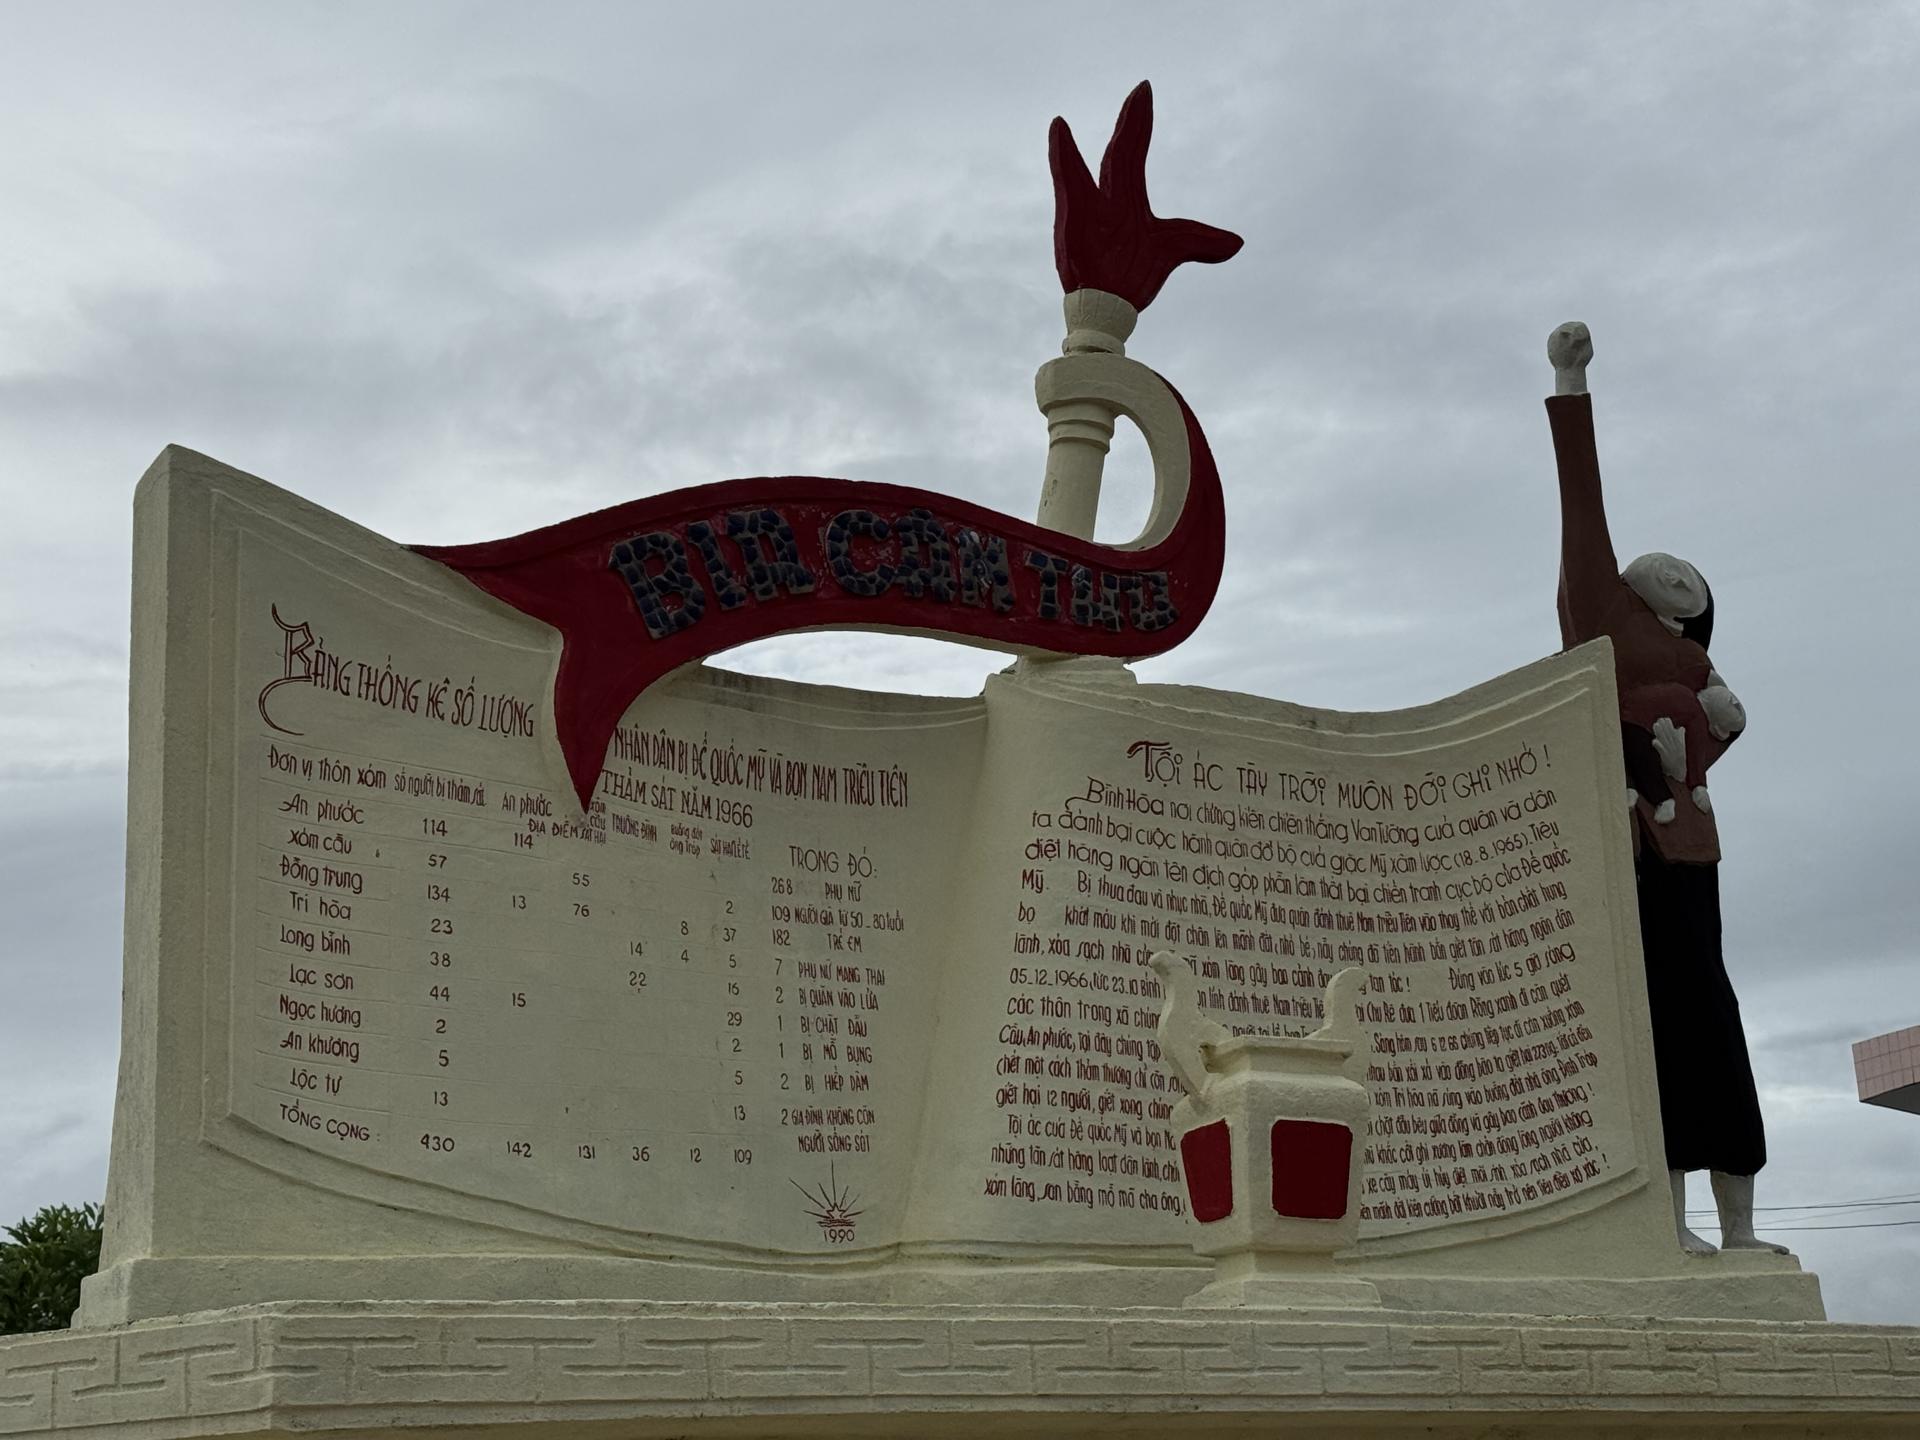 BIA CĂM THÙ
BẢNG THỐNG KÊ SỐ LƯỢNG
NHÂN DÂN BỊ ĐẾ QUỐC MỸ VÀ BỌN NAM TRIỀU TIÊN
THẢM SÁT NĂM 1966
Đơn vị thôn xóm số người bị thảm sát An phước
ĐỊA ĐIỂM SÁT HẠI TRƯỜNG ĐÌNH
An phước 114 114
xóm cầu 57 55 2
Đông trung 134 13 76 8 37
Trì hòa 23 14 4 5
Long bình 38 22 16
Lạc sơn 44 15 29
Ngọc hương 2 2
An khương 5 5
Lộc tự 13 13
TỔNG CỘNG : 430 142 131 36 12 109
TRONG ĐÓ:
268 PHỤ NỮ
109 NGƯỜI GIÀ TỪ 50 _ 80 tuổi
182 TRẺ EM
7 PHỤ NỮ MANG THAI
2 BỊ QUĂN VÀO LỬA
1 BỊ CHẶT ĐẦU
1 BỊ MỔ BỤNG
2 BỊ HIẾP DÂM
2 GIA ĐÌNH KHÔNG CÒN
NGƯỜI SỐNG SÓT
1990
TỘI ÁC TÀY TRỜI MUÔN ĐỜI GHI NHỚ !
Bình Hòa nơi chứng kiến chiến thắng Vạn Tường của quân và dân
ta đánh bại cuộc hành quân đổ bộ của giặc Mỹ xâm lược (18_8_1965). Tiêu
diệt hàng ngàn tên địch góp phần làm thất bại chiến tranh cục bộ của Đế quốc
Mỹ. Bị thua đau và nhục nhã, Đế quốc Mỹ đưa quân đánh thuê Nam triều Tiên vào thay thế với bản chất hung
bạo khát máu khi mới đặt chân lên mảnh đất nhỏ bé, nầy chúng đã tiến hành bắn giết tàn sát hàng ngàn dân
lành, xóa sạch nhà cửa mã xóm làng gây bao cảnh tan tóc ! Đúng vào lúc 5 giờ sáng
05_12_1966, tức 23.10 Bính lính đánh thuê Nam triều Chu Rê đưa 1 Tiểu đoàn Rồng xanh đi càn quét
các thôn trong xã chúng Sáng hôm sau 6 12 66 chúng tiếp tục đi càn xuống xóm
Cầu, An phước, tại đây chúng tập bắn xối xả vào đồng bào ta giết hại 273 ng.
chết một cách thảm thương chỉ còn xóm Trì hòa nã súng vào buồng đất nhà ông Đinh Tráp
giết hại 12 người, giết xong chúng chặt đầu bêu giữa đồng và gây bao cảnh đau thương !
Tội ác của Đế quốc Mỹ và bọn khắc cốt ghi xương
những tàn sát hàng loạt dân lành, xe cày máy ủi hủy diệt xóa sạch nhà cửa,
xóm làng, san bằng mồ mã cha ông, mảnh đất kiên cường bất khuất nầy trở nên tiêu điều xơ xác !